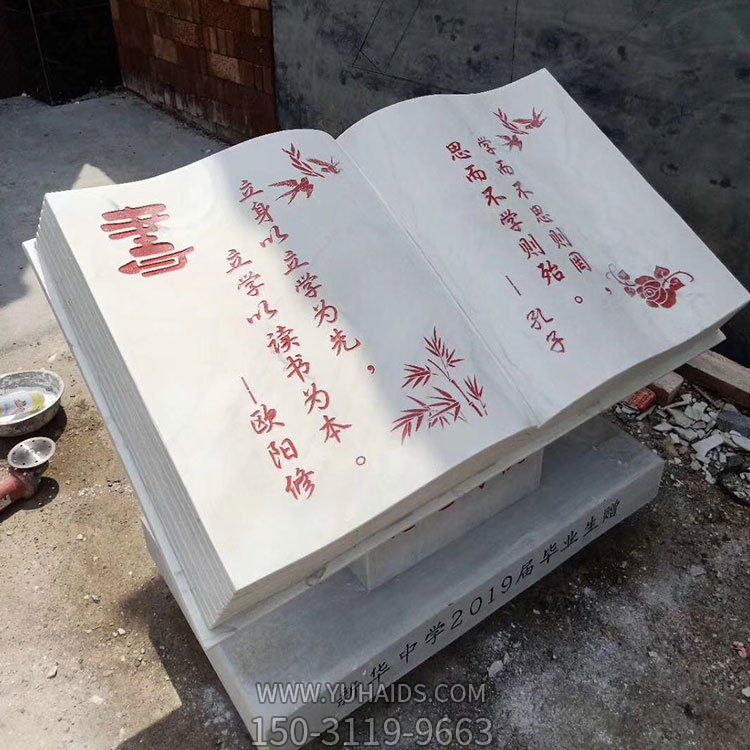 立身以立学为先，
立学以读书为本。
—欧阳修
学而不思则罔，
思而不学则殆。
—孔子
华中学2019届毕业生赠
WWW.YUHAIDS.COM
150-3119-9663